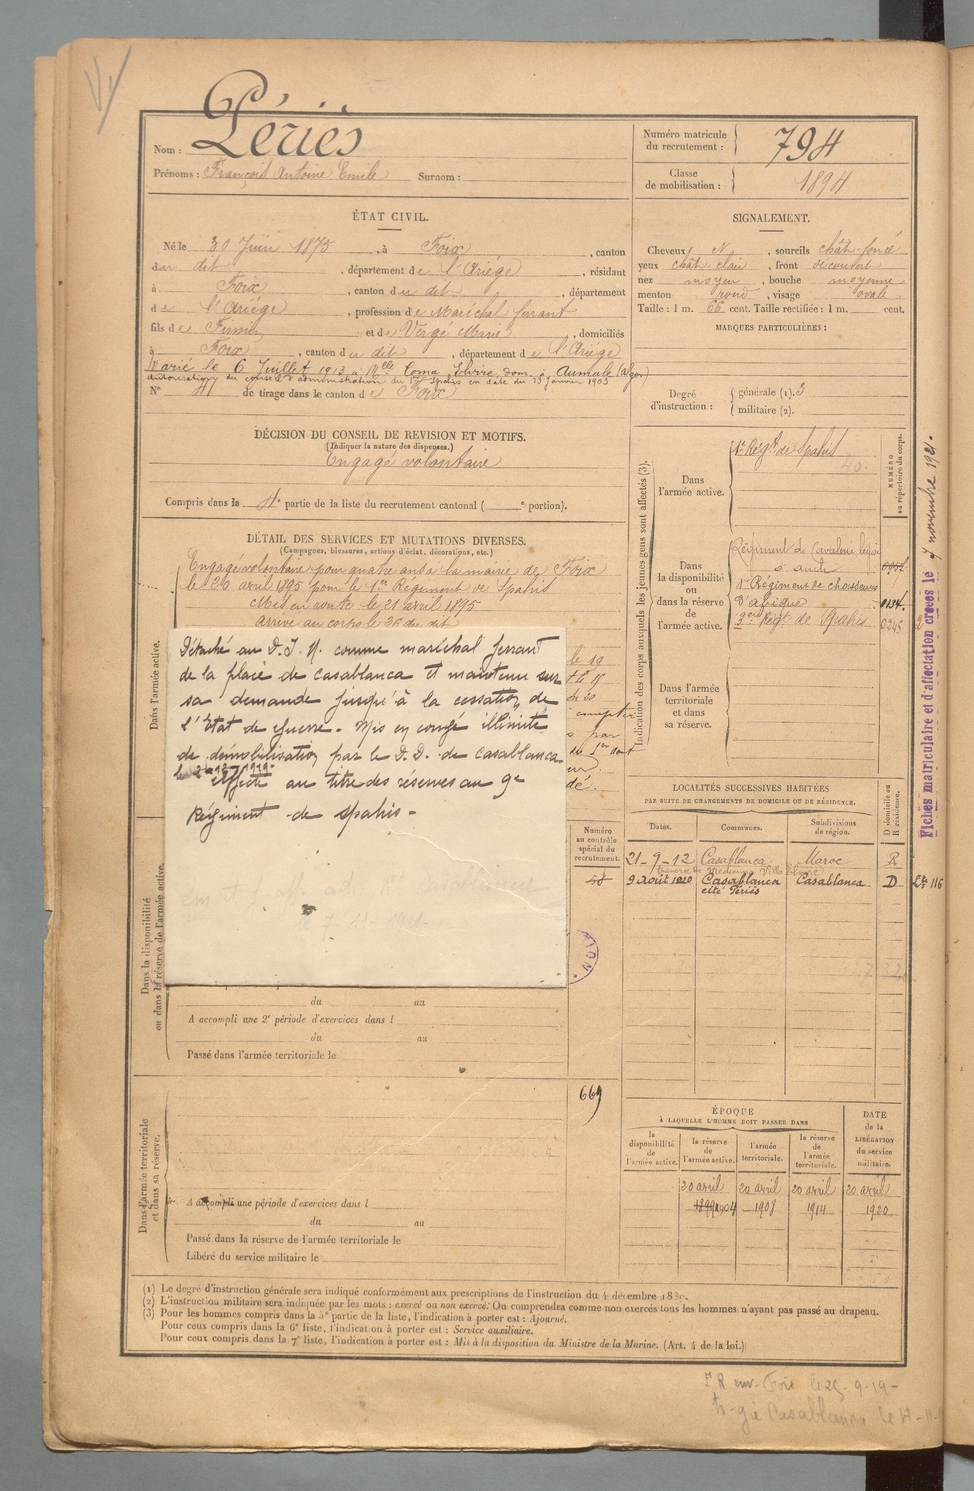 Nom : Périès
Prénoms : François Antoine Emile Surnom :
Numéro matricule du recrutement : 794
Classe de mobilisation : 1894
ÉTAT CIVIL.
Né le 30 Juin 1875, à Foix, canton
du dit, département de l'Ariége, résidant
à Foix, canton du dit, département
de l'Ariége, profession de Maréchal ferrant
fils de Firmin et de Vergé Marie, domiciliés
à Foix, canton du dit, département de l'Ariége
Marié le 6 Juillet 1913 à Mlle Coma Elvire, dom. à Aumale (Alger)
autorisation du conseil d'administration du 1er Spahis en date du 13 janvier 1903
N° de tirage dans le canton de Foix
SIGNALEMENT.
Cheveux N, sourcils chât-foncé
yeux chât clair, front découvert
nez moyen, bouche moyenne
menton rond, visage ovale
Taille : 1 m. 66 cent. Taille rectifiée : 1 m. cent.
MARQUES PARTICULIÈRES :
Degré d'instruction : générale (1). 3
militaire (2).
DÉCISION DU CONSEIL DE REVISION ET MOTIFS.
(Indiquer la nature des dispenses.)
Engagé volontaire
Compris dans la 4e partie de la liste du recrutement cantonal ( e portion).
DÉTAIL DES SERVICES ET MUTATIONS DIVERSES.
(Campagnes, blessures, actions d'éclat, décorations, etc.)
Engagé volontaire pour quatre ans à la mairie de Foix
le 20 avril 1895 pour le 1er Régiment de Spahis
Mis en route le 21 avril 1895
Arrivé au corps le 26 du dit
Détaché au D.I.M. comme maréchal ferrant
de la place de Casablanca et maintenu sur
sa demande jusqu'à la cessation de
l'Etat de guerre. Mis en congé illimité
de démobilisation par le D.D. de Casablanca
Affecté au titre des réserves au 9e
Régiment de Spahis.
le 7-11-1921
Dans l'armée active.
Dans la disponibilité ou dans la réserve de l'armée active.
Dans l'armée territoriale et dans sa réserve.
Indication des corps auxquels les jeunes gens sont affectés (3).
NUMÉRO au répertoire du corps.
Dans l'armée active.
1er Régt de Spahis
40.
Dans la disponibilité ou dans la réserve de l'armée active.
Régiment de Cavalerie légère
1er Régiment de chasseurs
d'afrique
0134.
Régt de Spahis
Dans l'armée territoriale et dans sa réserve.
Fiches matriculaire et d'affectation créées le 7 novembre 1921.
LOCALITÉS SUCCESSIVES HABITÉES
PAR SUITE DE CHANGEMENTS DE DOMICILE OU DE RÉSIDENCE.
Dates. Communes. Subdivisions de région. D domicile ou R résidence.
21-9-12 Casablanca Maroc R
9 août 1920 Casablanca Casablanca D
cité Périès
Numéro au contrôle spécial du recrutement.
669
du au
A accompli une 2e période d'exercices dans l
du au
Passé dans l'armée territoriale le
A accompli une période d'exercices dans l
du au
Passé dans la réserve de l'armée territoriale le
Libéré du service militaire le
ÉPOQUE
À LAQUELLE L'HOMME DOIT PASSER DANS
la disponibilité de l'armée active.
la réserve de l'armée active.
l'armée territoriale.
la réserve de l'armée territoriale.
DATE de la LIBÉRATION du service militaire.
20 avril 20 avril 20 avril 20 avril
1899 1904 1908 1914 1920
(1) Le degré d'instruction générale sera indiqué conformément aux prescriptions de l'instruction du 4 décembre 1889.
(2) L'instruction militaire sera indiquée par les mots : exercé ou non exercé. On comprendra comme non exercés tous les hommes n'ayant pas passé au drapeau.
(3) Pour les hommes compris dans la 5e partie de la liste, l'indication à porter est : Ajourné.
Pour ceux compris dans la 6e liste, l'indication à porter est : Service auxiliaire.
Pour ceux compris dans la 7e liste, l'indication à porter est : Mis à la disposition du Ministre de la Marine. (Art. 4 de la loi.)